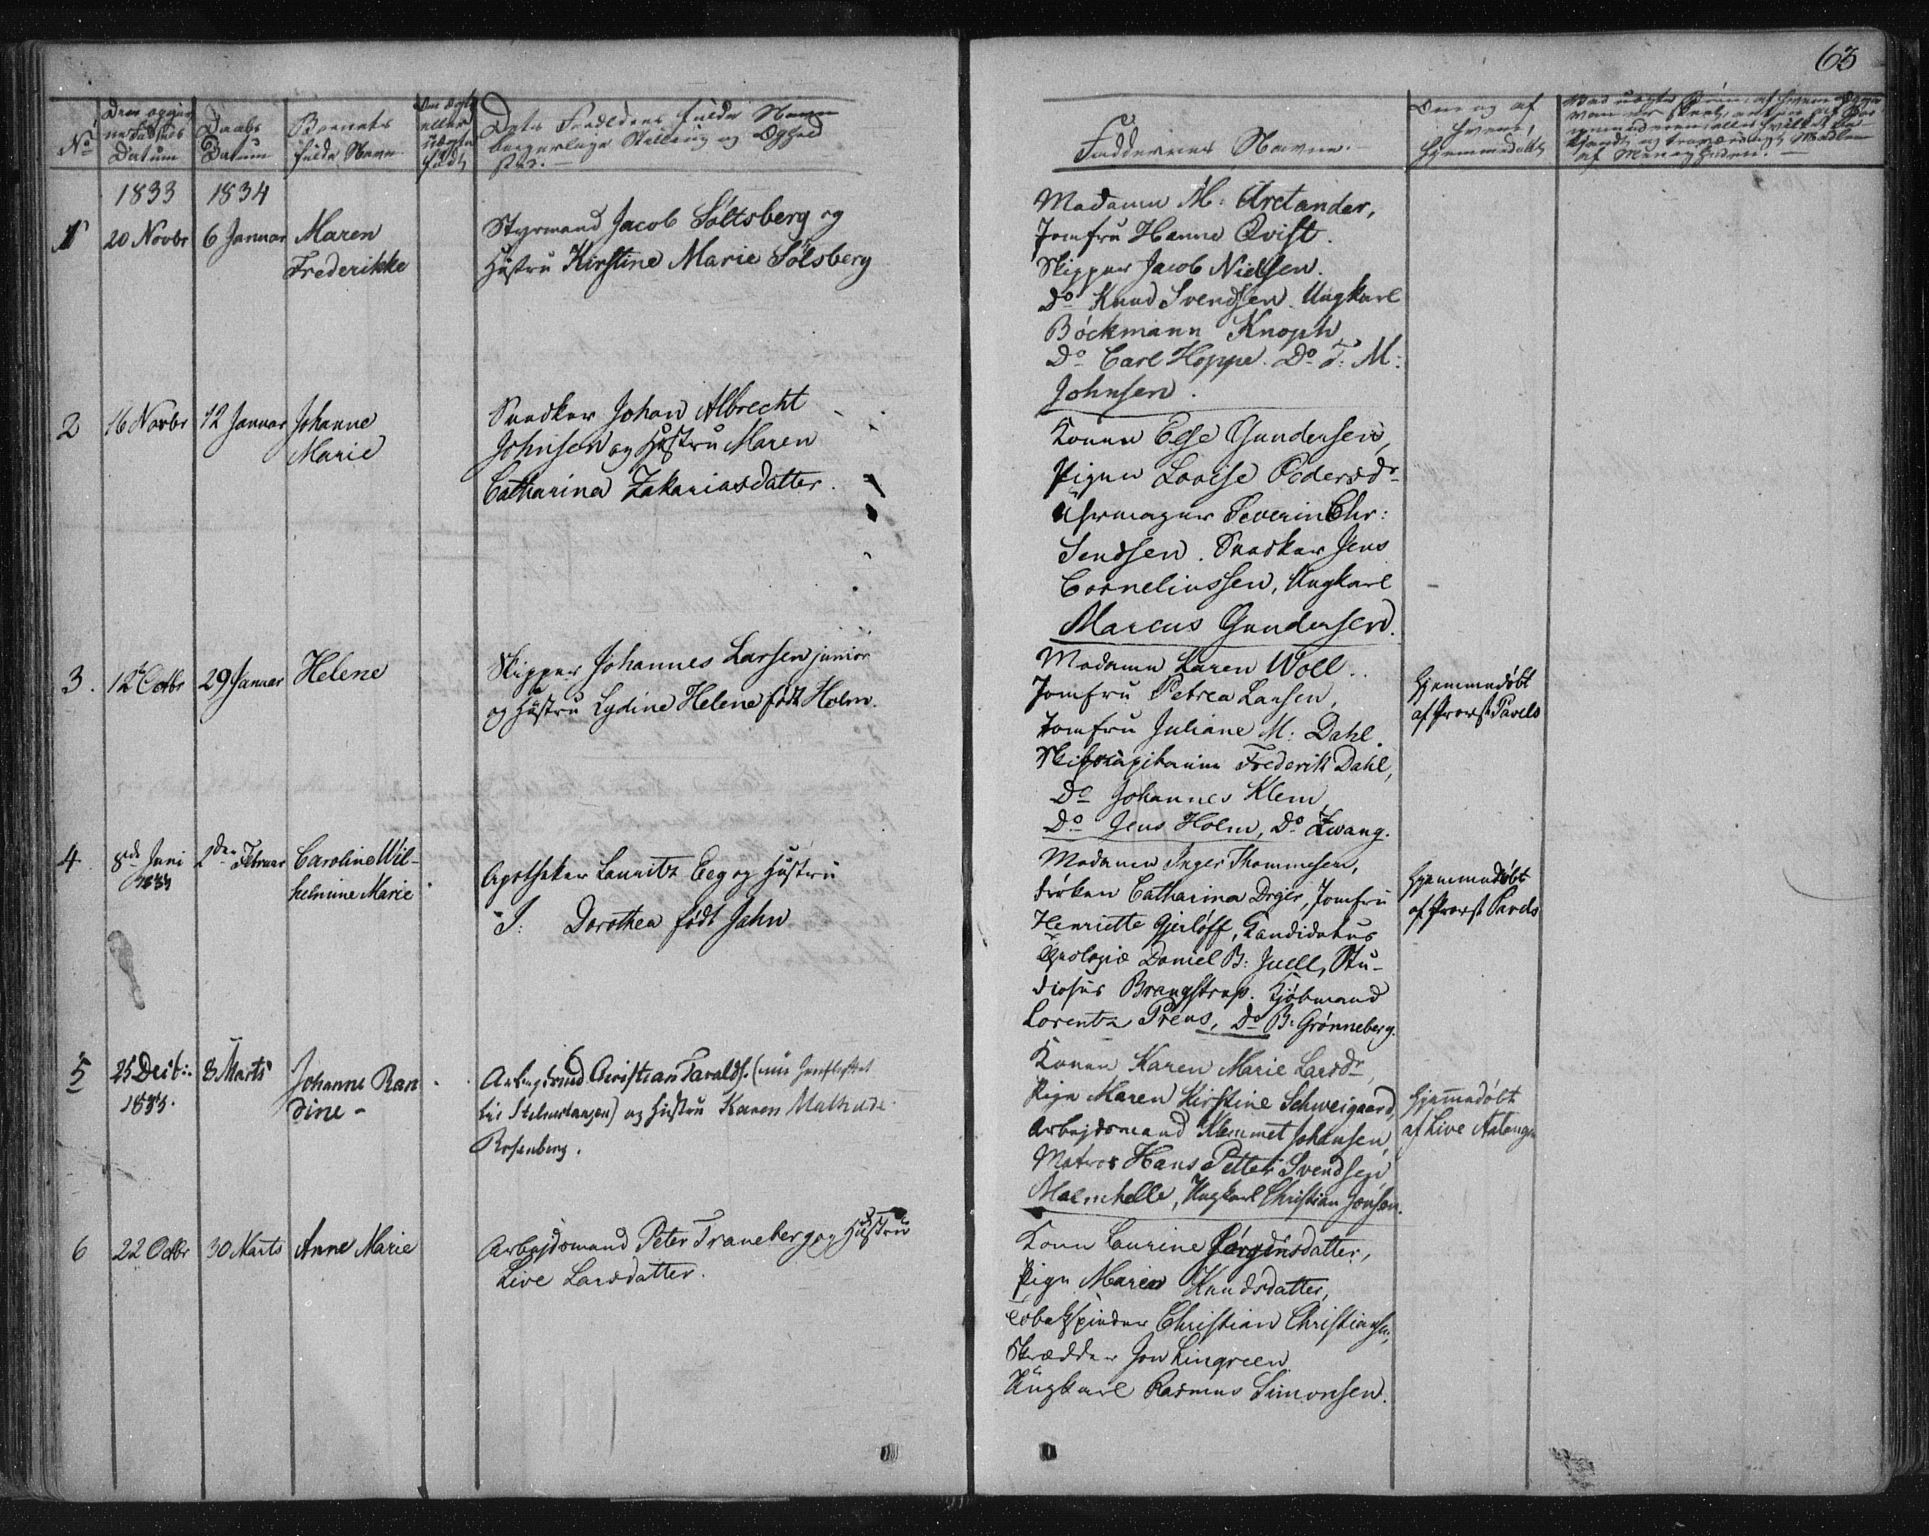 63
No
Datum
Daabs
Datum
Barnets
fulde Navn
fulde Navne
Stilling og
Faddernes Navne.
Om og af
hvem
hjemmedøbt
af Menigheden.
1833 1834
1 20 Novbr 6 Januar Maren
Frederikke
Styrmand Jacob Söltsberg og
Hustru Kirstine Marie Sölsberg
Madame M: Arctander,
Jomfru Hanne Qvist.
Skipper Jacob Nielsen.
Do Knud Svendsen. Ungkarl
Böckmann Knoph
Do Carl Hoppe. Do T. M:
Johnsen.
2 16 Novbr 12 Januar Johanne
Marie
Snedker Johan Albrecht
Johnsen og Hustru Maren
Catharina Zakariasdatter.
Konen Else Gundersen,
Pigen Lovise Pedersdr
Uhrmager Severin Chr:
Sendsen. Snedker Jens
Corneliussen, Ungkarl
Marcus Gundersen.
3. 12 Octbr 29 Januar Helene
Skipper Johannes Larsen junior
og Hustru Lydine Helene født Holm.
Madame Karen Woll.
Jomfru Petrea Larsen,
Jomfru Juliane M: Dahl.
Skibscapitaine Frederik Dahl,
Do Johannes Klem,
Do Jens Holm, Do Zwang.
Hjemmedøbt
af Provst Pavels
4 8de Juni 2den Februar Caroline Wil-
1833 helmine Marie
Apotheker Lauritz Eeg og Hustru
S: Dorothea født Jahn
Madame Inger Thommesen,
Frøken Catharina Drejer, Jomfru
Henriette Gjerløff, Kandidatus
Theologiæ Daniel B: Juell, Stu-
diosus Brangstrup. Kjøbmand
Lorentz Prens, Do B: Grønneberg.
Hjemmedøbt
af Provst Pavels
5 25 Decb: 8 Marts Johanne Ran
1833. dine -
Arbejdsmd Christian Taralds. (nu henflyttet
til ) og Hustru Karen Mathilde
Rosenberg.
Konen Karen Marie Larsdr,
Pige Maren Kirstine Schweigaard,
Arbejdsmand Klemmet Johansen,
Matros Hans Petter Svendsen
Malmhelle, Ungkarl Christian Jonsen.
Hjemmedøbt
af Live
6 22 Octbr 30 Marts Anne Marie
Arbejdsmand Peter Traneberg og Hustru
Live Larsdatter.
Kone Laurine Jørgensdatter,
Pige Maren Knudsdatter,
Tobakspinder Christian Christiansen,
Skrædder Jon Lingreen
Ungkarl Rasmus Simonsen.